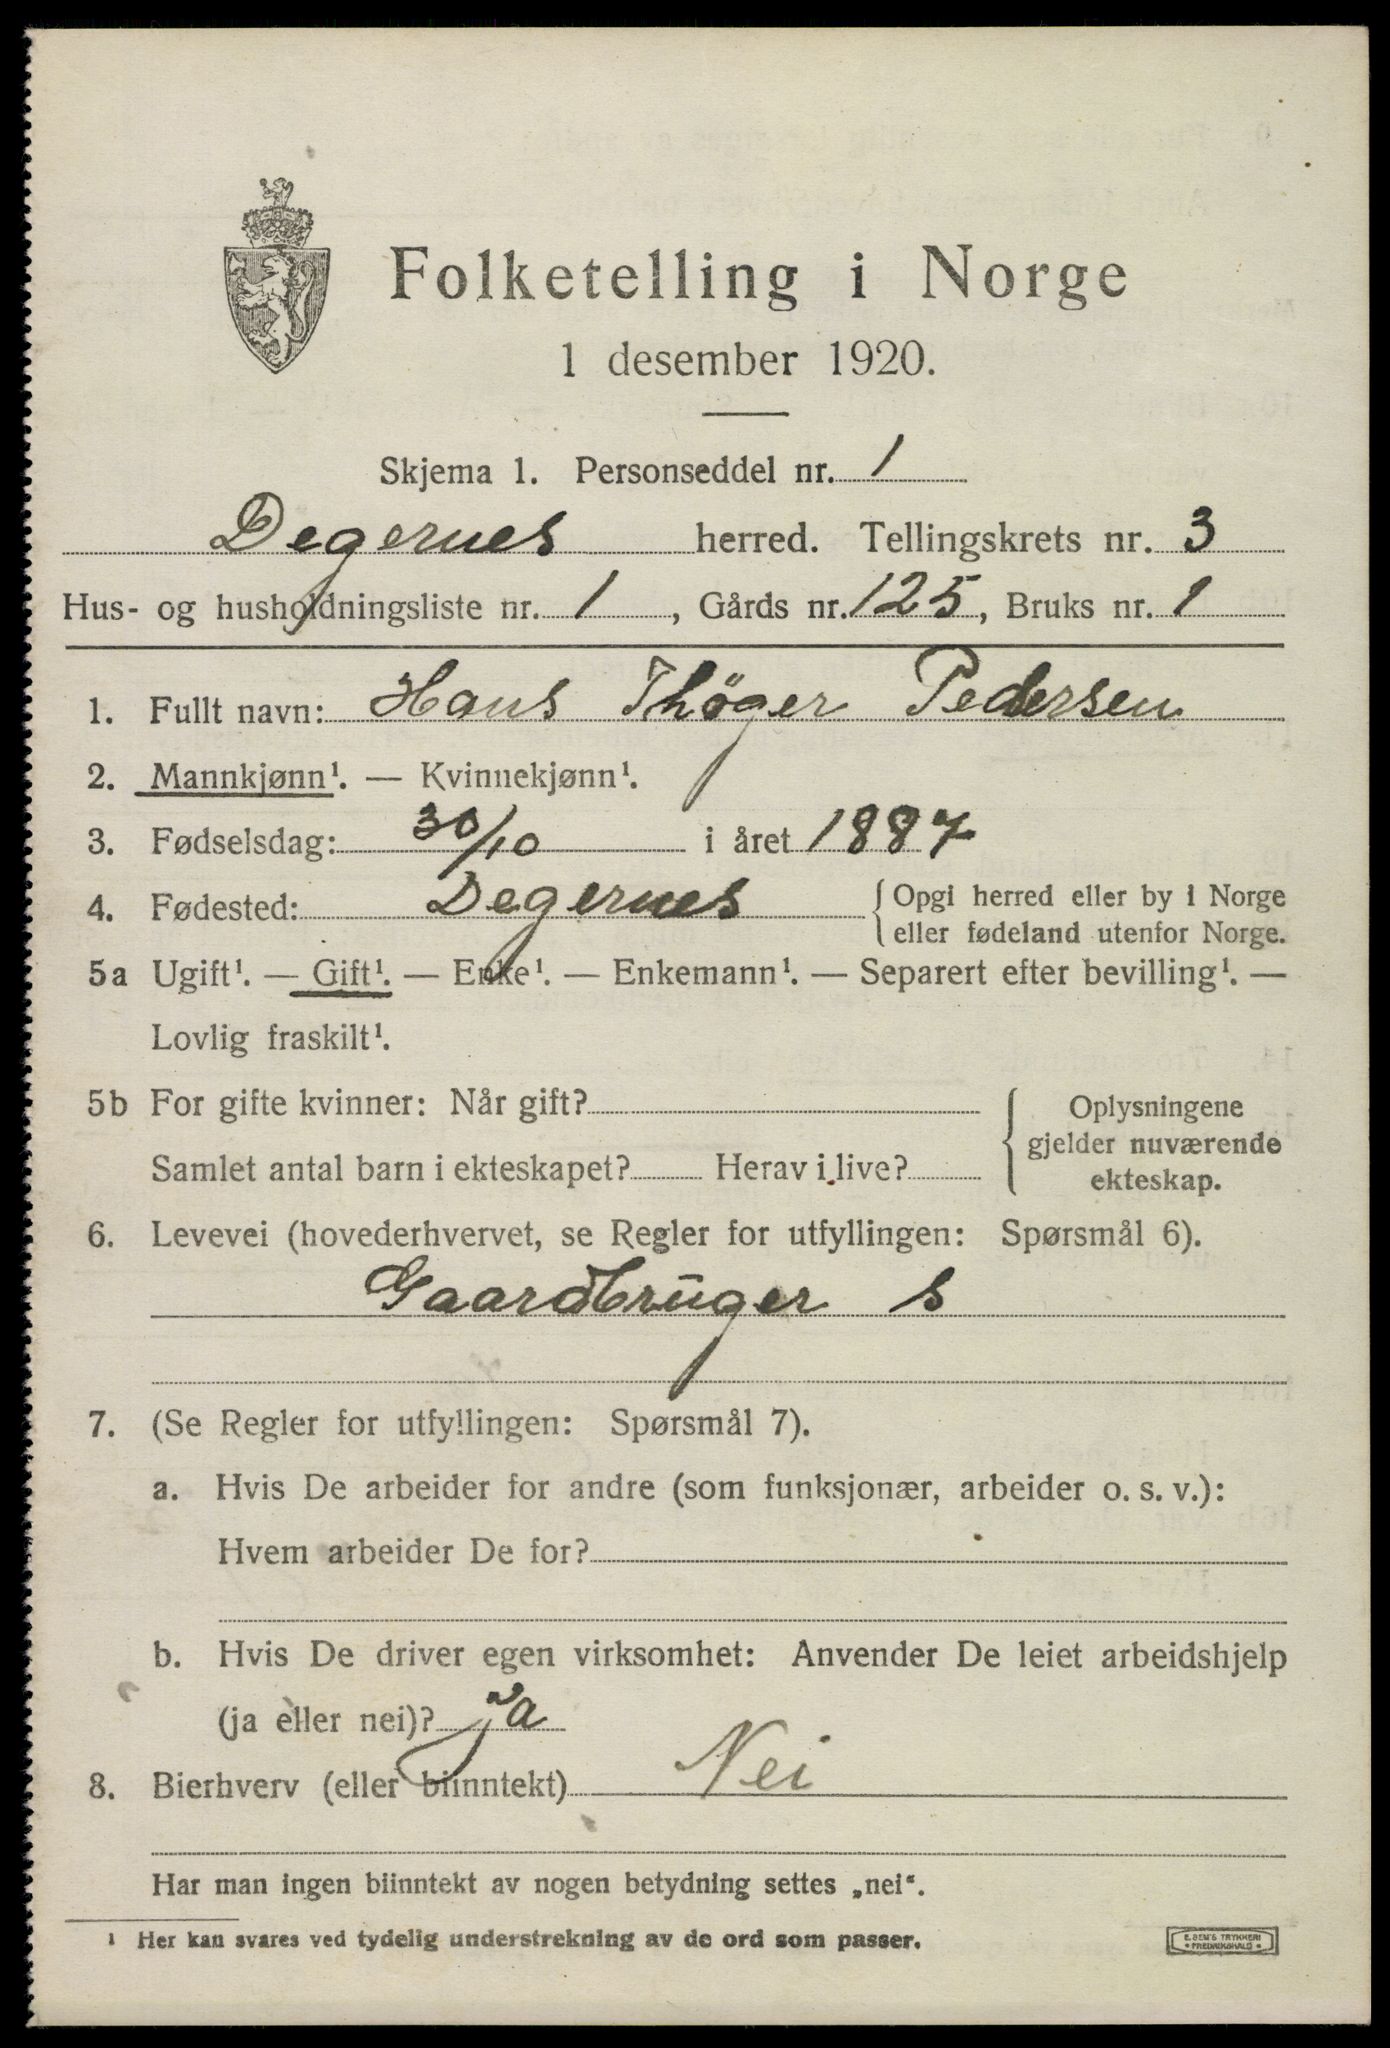 Folketelling i Norge
1 desember 1920.
Skjema 1. Personseddel nr. 1
Degernes herred. Tellingskrets nr. 3
Hus- og husholdningsliste nr. 1, Gårds nr. 125, Bruks nr. 1
1. Fullt navn: Hans Thøger Pedersen
2. Mannkjønn¹. — Kvinnekjønn¹.
3. Fødselsdag: 30/10 i året 1887
4. Fødested: Degernes { Opgi herred eller by i Norge
eller fødeland utenfor Norge.
5a Ugift¹. — Gift¹. — Enke¹. — Enkemann¹. — Separert efter bevilling¹. —
Lovlig fraskilt¹.
5b For gifte kvinner: Når gift?
Samlet antal barn i ekteskapet? Herav i live?
Oplysningene
gjelder nuværende
ekteskap.
6. Levevei (hovederhvervet, se Regler for utfyllingen: Spørsmål 6).
Gaardbruger s
7. (Se Regler for utfyllingen: Spørsmål 7).
a. Hvis De arbeider for andre (som funksjonær, arbeider o. s. v.):
Hvem arbeider De for?
b. Hvis De driver egen virksomhet: Anvender De leiet arbeidshjelp
(ja eller nei)? ja
8. Bierhverv (eller biinntekt) Nei
Har man ingen biinntekt av nogen betydning settes „nei“.
¹ Her kan svares ved tydelig understrekning av de ord som passer.
E. SEM'S TRYKKERI
FREDRIKSHALD